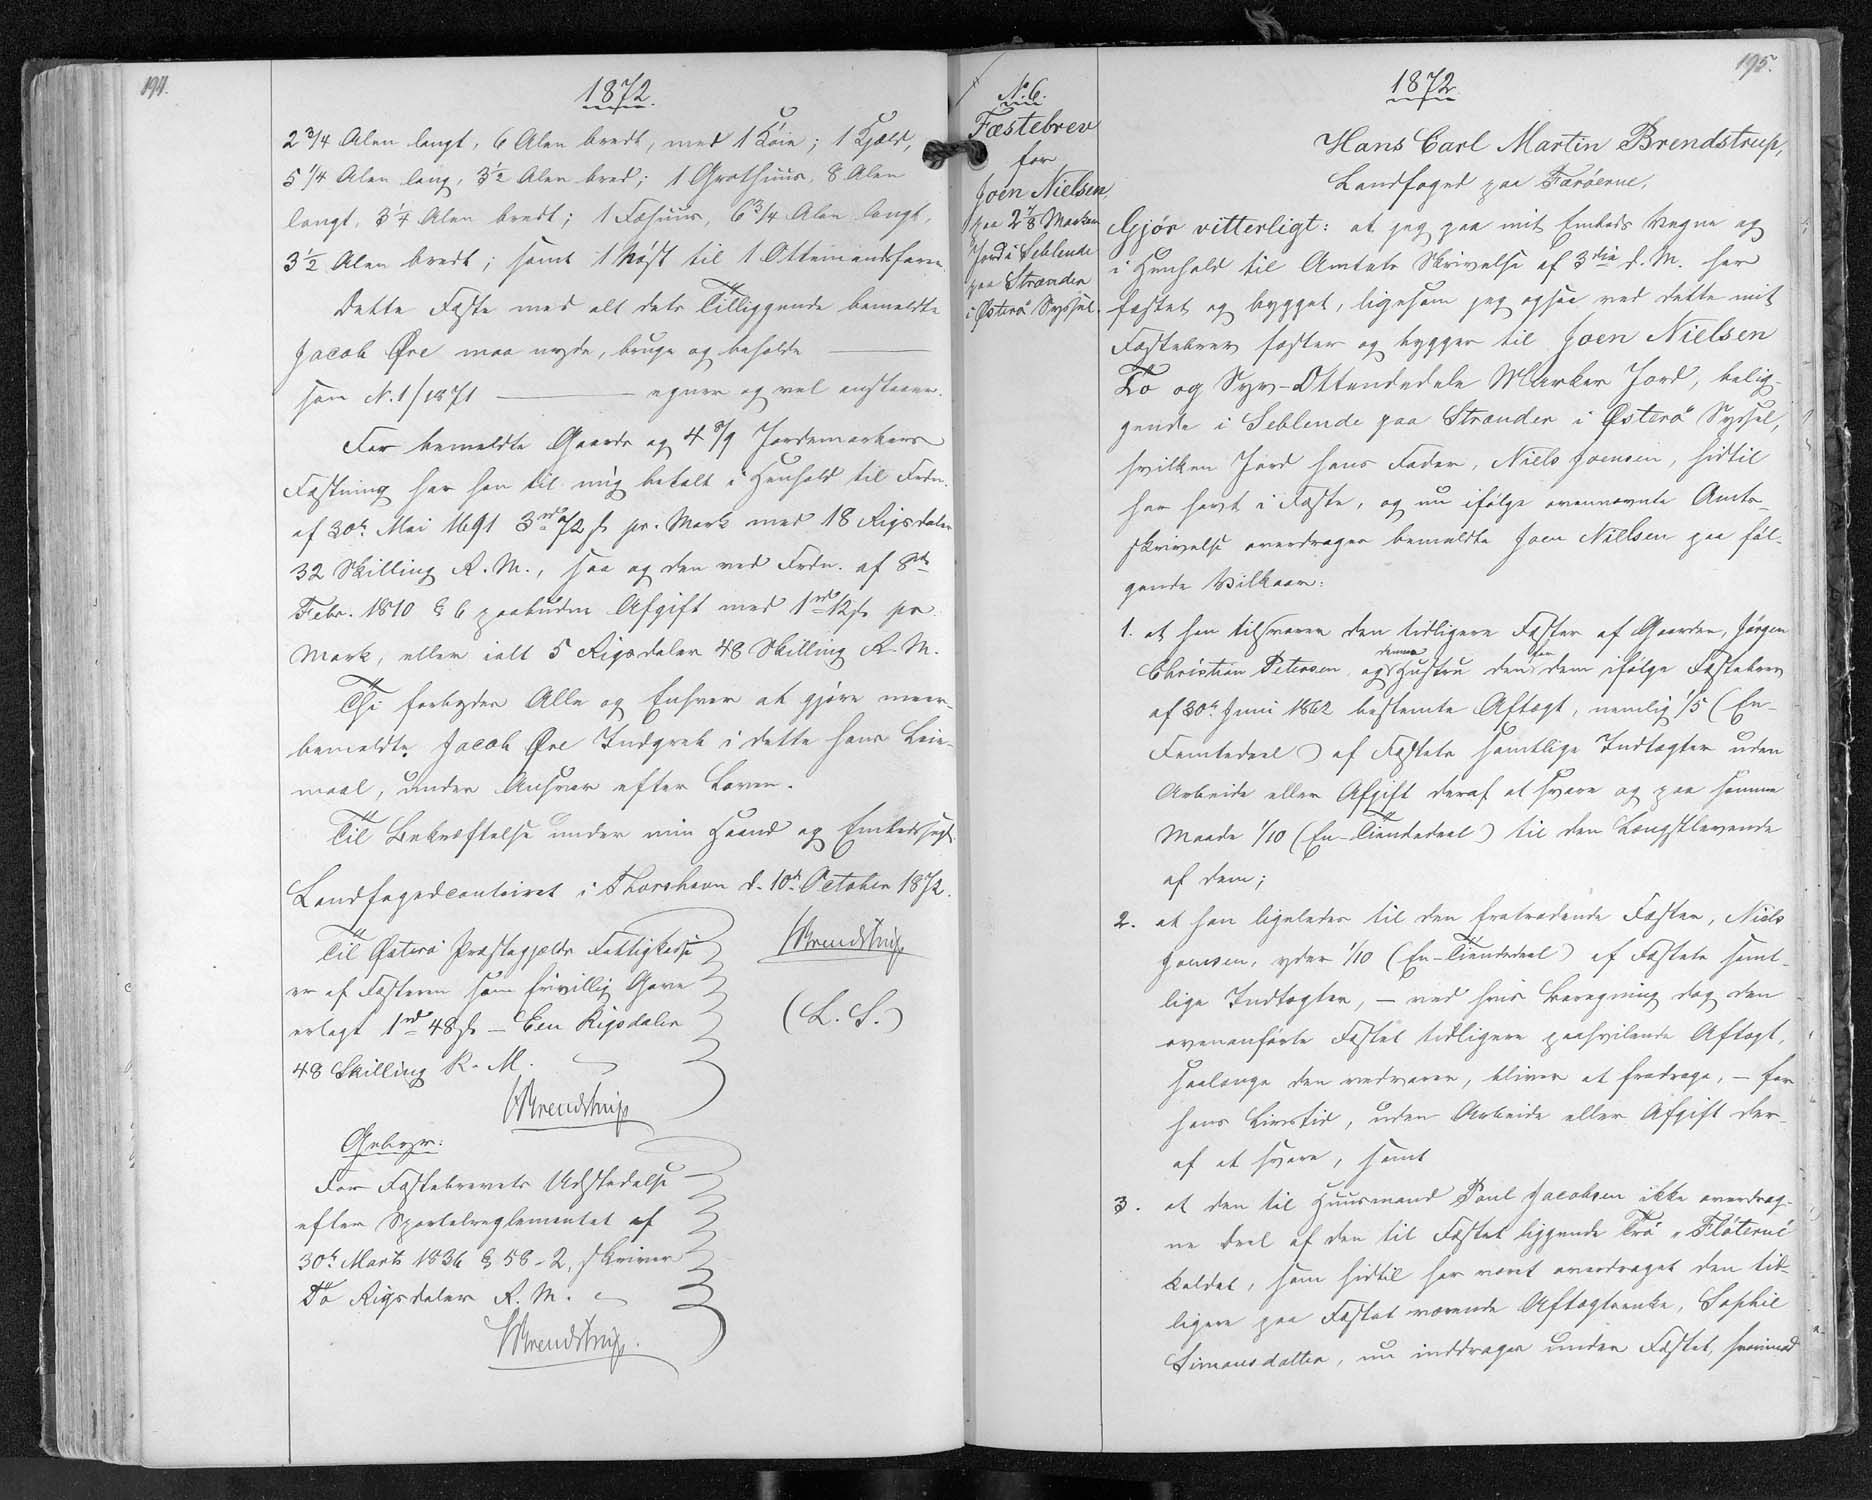 194.
1872.
2 3/4 Alen langt, 6 Alen bredt, med 1 Køie; 1 Kjæld,
5 1/4 Alen lang, 3 1/2 Alen bred; 1 Grothuus, 8 Alen
langt, 3 1/4 Alen bredt; 1 Fæhuus, 6 3/4 Alen langt,
3 1/2 Alen bredt; samt 1 Nøst til 1 Ottemandsfarer.
Dette Fæste med alt dets Tilliggende bemeldte
Jacob Øre maa nyde, bruge og beholde —
som N. 1/1871 — egner og vel anstaaer.
For bemeldte Gaards og 4 8/9 Jordemarkers
Fæstning har han til mig betalt i Henhold til Frdn.
af 30te Mai 1691 3 rd 72 s pr. Mark med 18 Rigsdaler
32 Skilling R. M., saa og den ved Frdn. af 8de
Febr. 1810 § 6 paabudne Afgift med 1 rd 12 s pr.
Mark, eller ialt 5 Rigsdaler 48 Skilling R. M.
Thi forbydes Alle og Enhver at gjøre meer-
bemeldte Jacob Øre Indgreb i dette hans Leie-
maal, under Ansvar efter Loven.
Til Bekræftelse under min Haand og Embedssegl.
Landfogedcontoiret i Thorshavn d. 10de October 1872.
Brendstrup
(L. S.)
Til Østerø Præstegjælds Fattigkasse
er af Fæsteren som frivillig Gave
erlagt 1 rd 48 s — Een Rigsdaler
48 Skilling R. M.
Brendstrup
Gebyr:
For Fæstebrevets Udstedelse
efter Sportelreglementet af
30te Marts 1836 § 58-2, skriver
To Rigsdaler R. M.
Brendstrup.
195.
1872.
No. 6.
Fæstebrev
for
Joen Nielsen
paa 2 7/8 Marker
Jord i Seblende
paa Strænder
i Østerø Syssel.
Hans Carl Martin Brendstrup,
Landfoged paa Færøerne,
Gjør vitterligt: at jeg paa mit Embeds Vegne og
i Henhold til Amtets Skrivelse af 3die d. M. har
fæstet og bygget, ligesom jeg ogsaa ved dette mit
Fæstebrev fæster og bygger til Joen Nielsen
To og Syv-Ottendedele Marker Jord, belig-
gende i Seblende paa Strænder i Østerø Syssel,
hvilken Jord hans Fader, Niels Joensen, hidtil
har havt i Fæste, og nu ifølge ovennævnte Amts-
skrivelse overdrages bemeldte Joen Nielsen paa føl-
gende Vilkaar:
1. at han tilsvarer den tidligere Fæster af Gaarden, Jørgen
Christian Petersen, og dennes Hustru den for dem ifølge Fæstebrev
af 30te Juni 1862 bestemte Aftægt, nemlig 1/5 (En-
Femtedeel) af Fæstets samtlige Indtægter uden
Arbeide eller Afgift deraf at svare og paa samme
Maade 1/10 (En-Tiendedeel) til den Længstlevende
af dem;
2. at han ligeledes til den fratrædende Fæster, Niels
Joensen, yder 1/10 (En-Tiendedeel) af Fæstets samt-
lige Indtægter, — ved hvis Beregning dog den
ovenanførte Fæstet tidligere paahvilende Aftægt,
saalænge den vedvarer, bliver at fradrage, — for
hans Livstid, uden Arbeide eller Afgift der-
af at svare, samt
3. at den til Huusmand Poul Jacobsen ikke overdrag-
ne Deel af den til Fæstet liggende Trø "Fløterne"
kaldet, som hidtil har været overdraget den tid-
ligere paa Fæstet værende Aftægtsenke, Sophie
Simonsdatter, nu inddrages under Fæstet, hvorimod